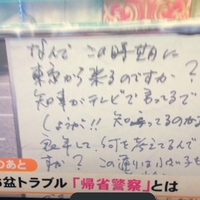 なんでこの時期に
東京から来るのですか?
知事がテレビで言ってるで
しょうが!! 知ってるのかな
何を考えてるんで
すか?この通りは小さい子も
のあと
盆トラブル「帰省警察」とは